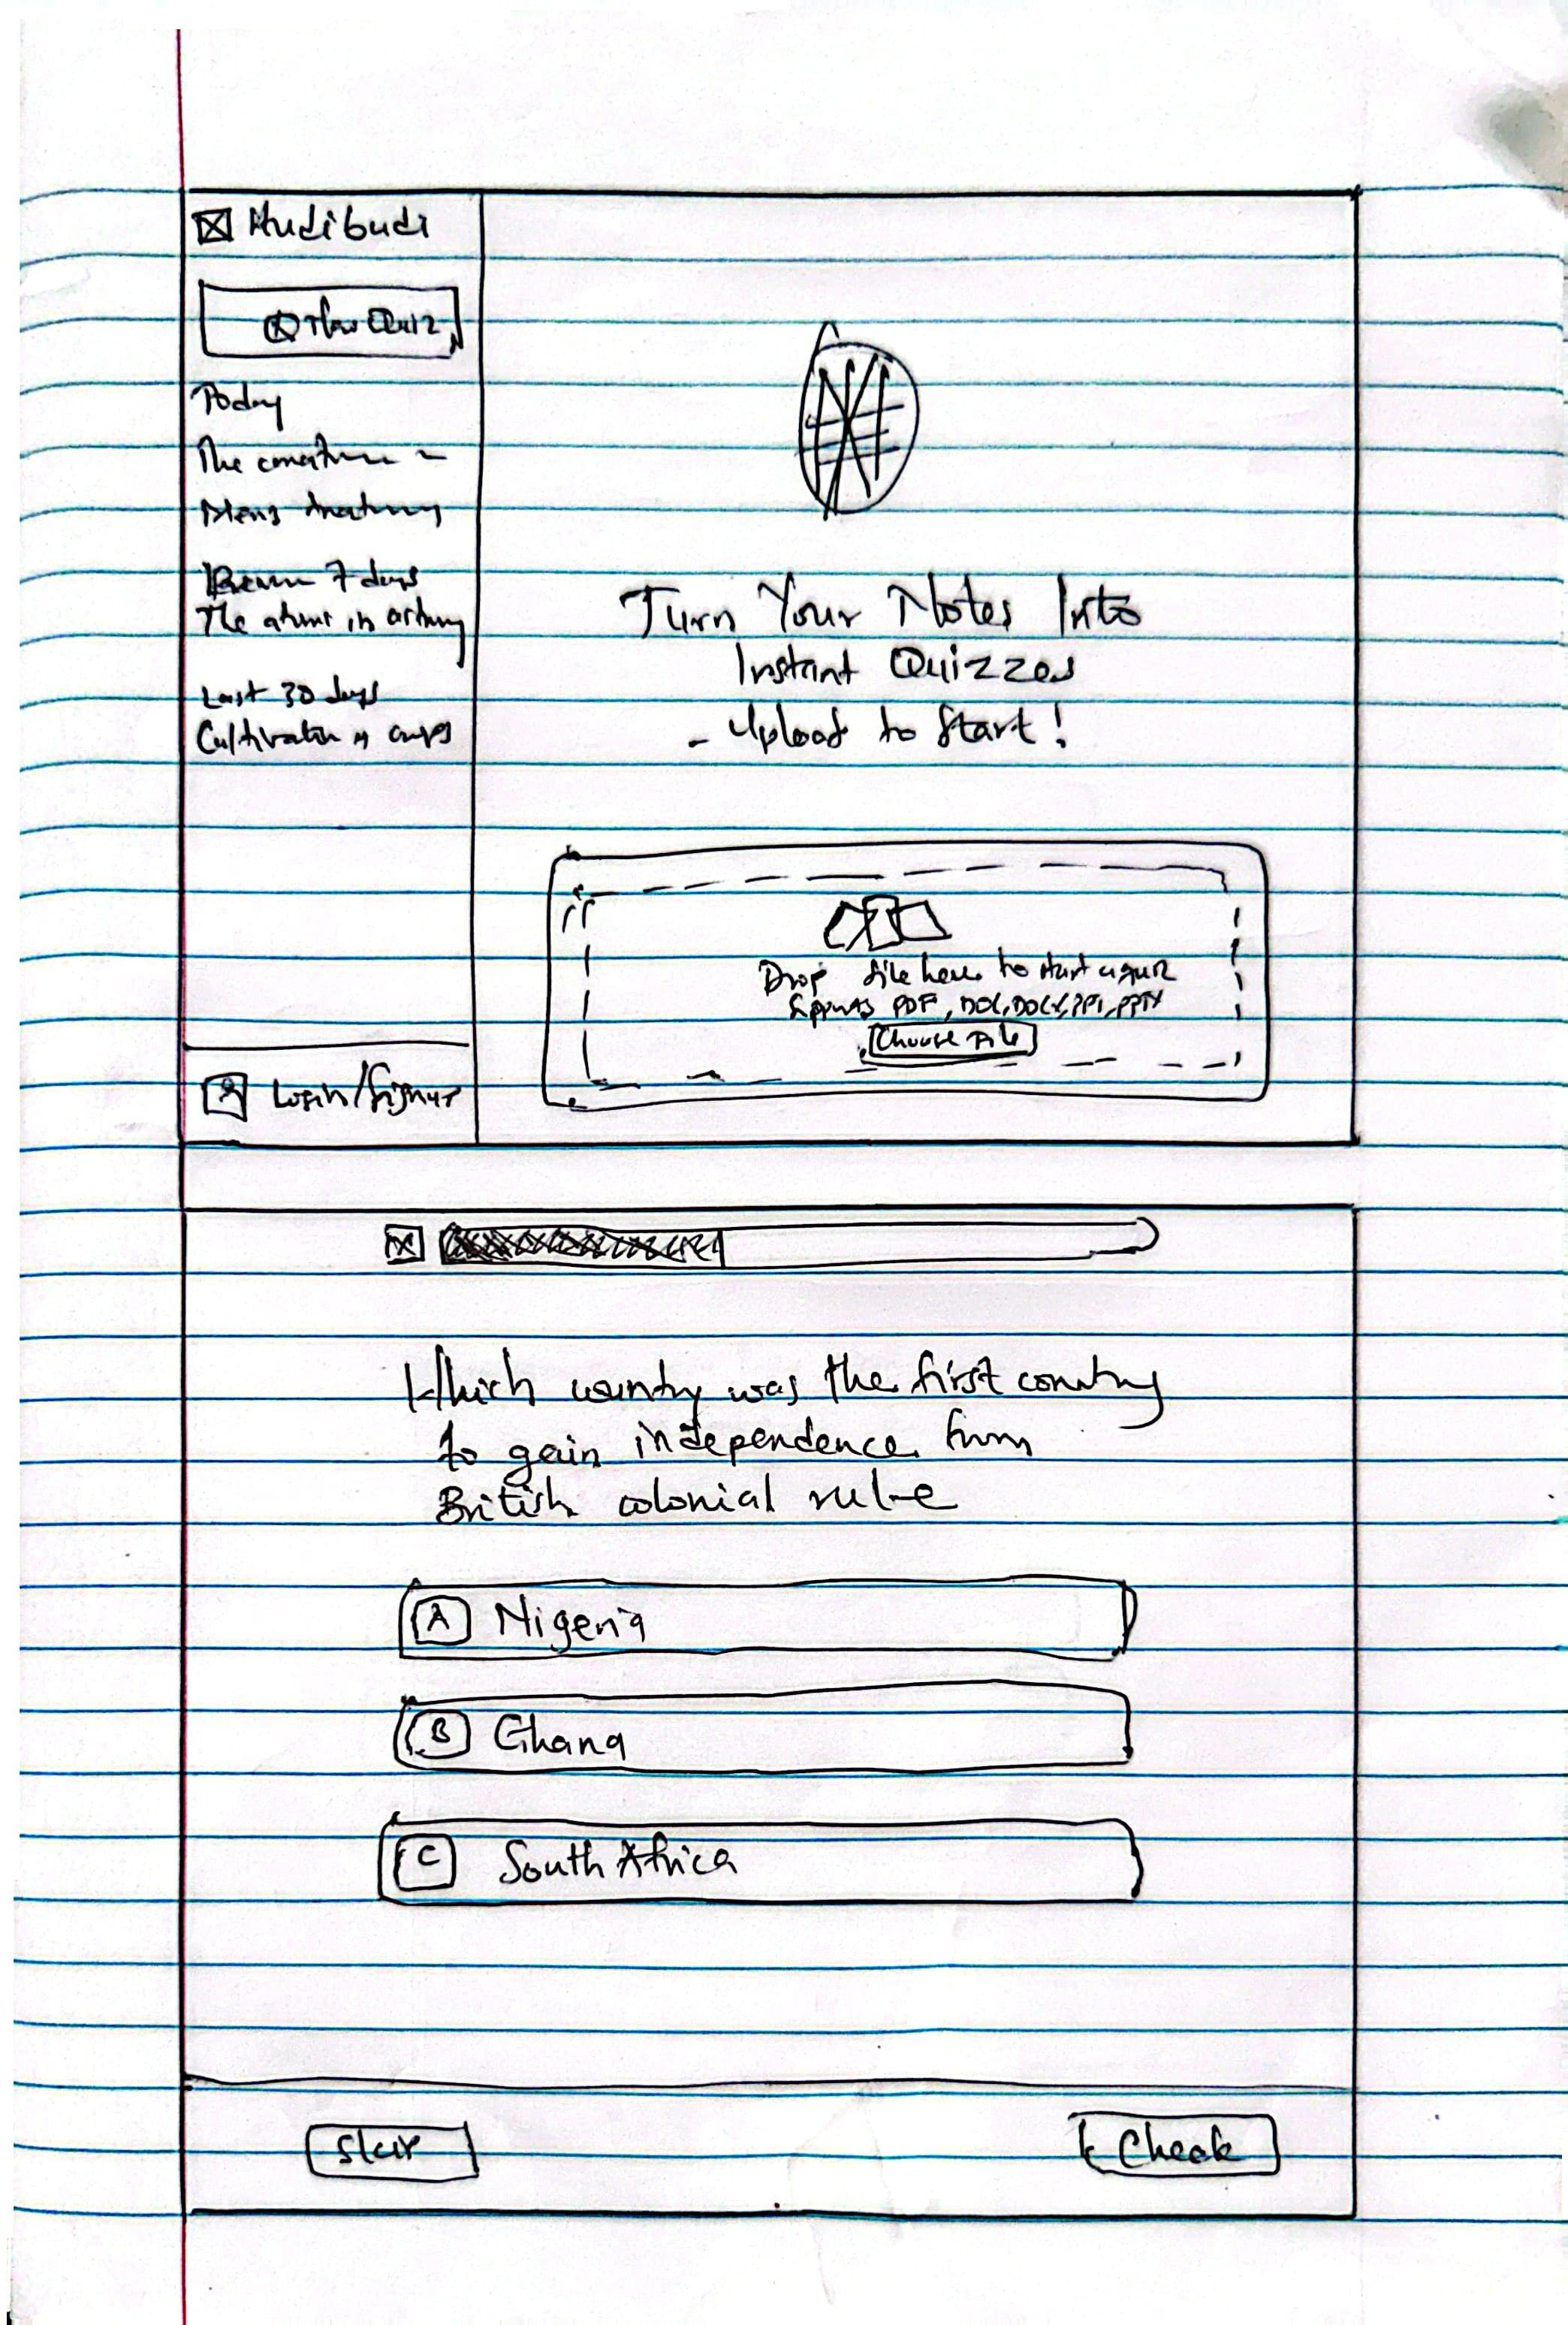 Hudibudi
New Quiz
Today
The
Recent 7 days
The in
Last 30 days
Cultivation of crops
Login/Signup
Turn Your Notes Into
Instant Quizzes
- Upload to Start!
Drop file here to start a quiz
Supports PDF, DOC, DOCX, PPT, PPTX
Choose File
Which country was the first country
to gain independence from
British colonial rule
A Nigeria
B Ghana
C South Africa
Skip
Check